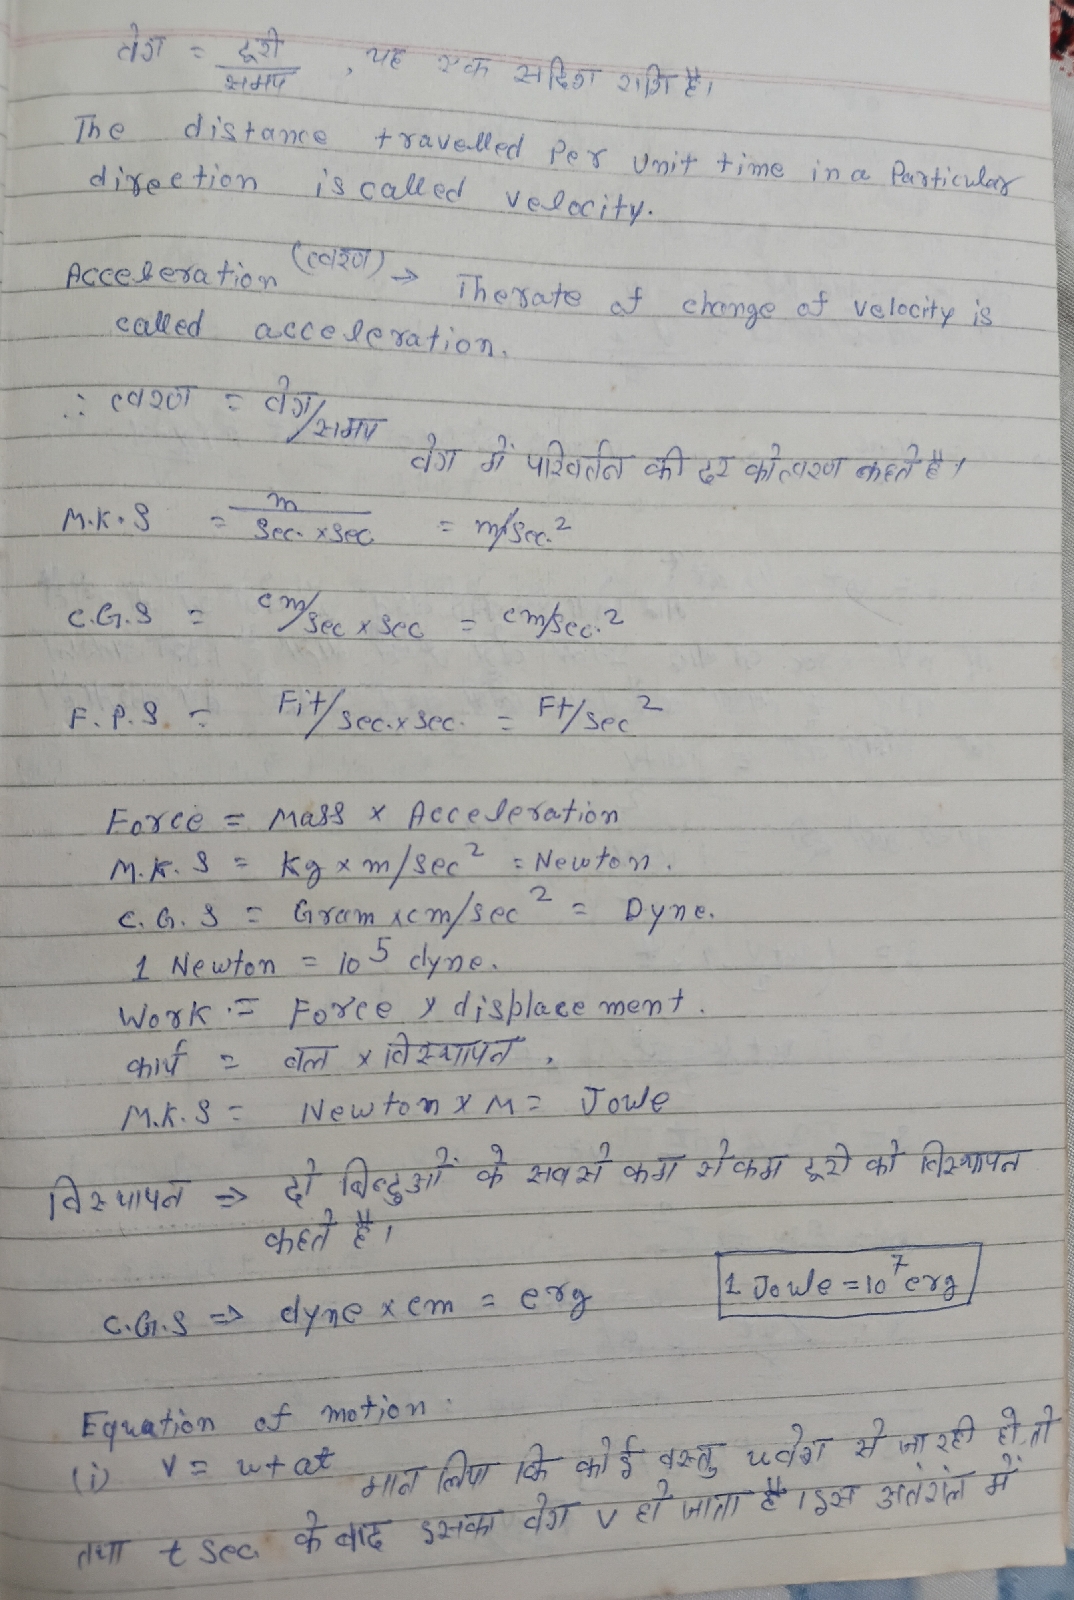 वेग = दूरी/समय , यह एक सदिश राशि है।
The distance travelled Per unit time in a Particular
direction is called velocity.
Acceleration (त्वरण) → The rate of change of velocity is
called acceleration.
∴ त्वरण = वेग/समय
वेग में परिवर्तन की दर को त्वरण कहते है।
M.K.S = m/Sec. x Sec = m/Sec.²
C.G.S = cm/Sec x Sec = cm/Sec.²
F.P.S = Fit/Sec. x Sec. = Ft/Sec²
Force = Mass x Acceleration
M.K.S = Kg x m/sec² = Newton.
C.G.S = Gram x cm/sec² = Dyne.
1 Newton = 10⁵ dyne.
Work = Force x displacement.
कार्य = बल x विस्थापन .
M.K.S = Newton x M = Joule
विस्थापन ⇒ दो बिन्दुओं के सबसे कम से कम दूरी को विस्थापन
कहते है।
C.G.S ⇒ dyne x cm = erg 1 Joule = 10⁷ erg
Equation of motion :
(i) v = u+at मान लिया कि कोई वस्तु u वेग से जा रही हो तो
तथा t sec के बाद इसका वेग v हो जाता है। इस अतंराल में